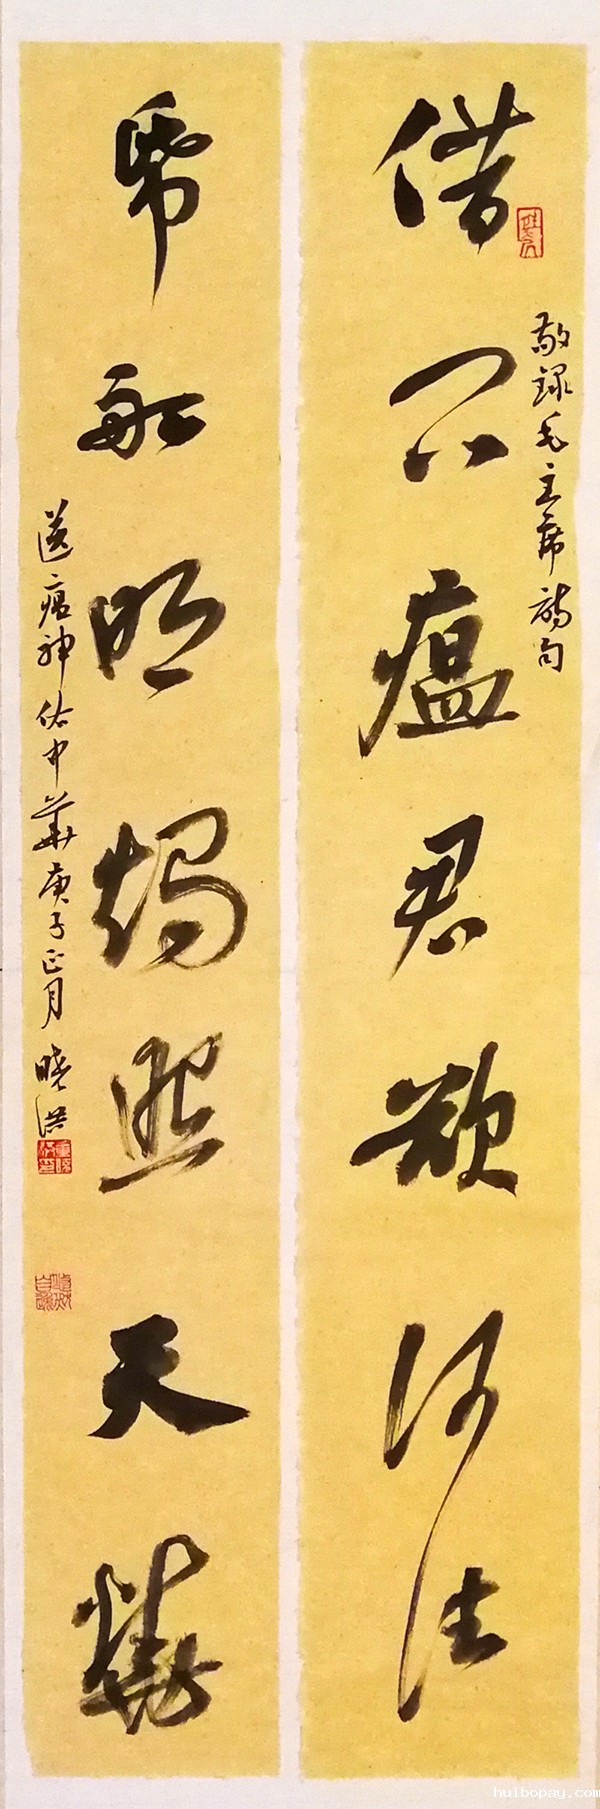 借问瘟君欲何往
敬録毛主席诗句
帋船明烛照天烧
送瘟神佑中華庚子正月 晓洪
huibopay.com